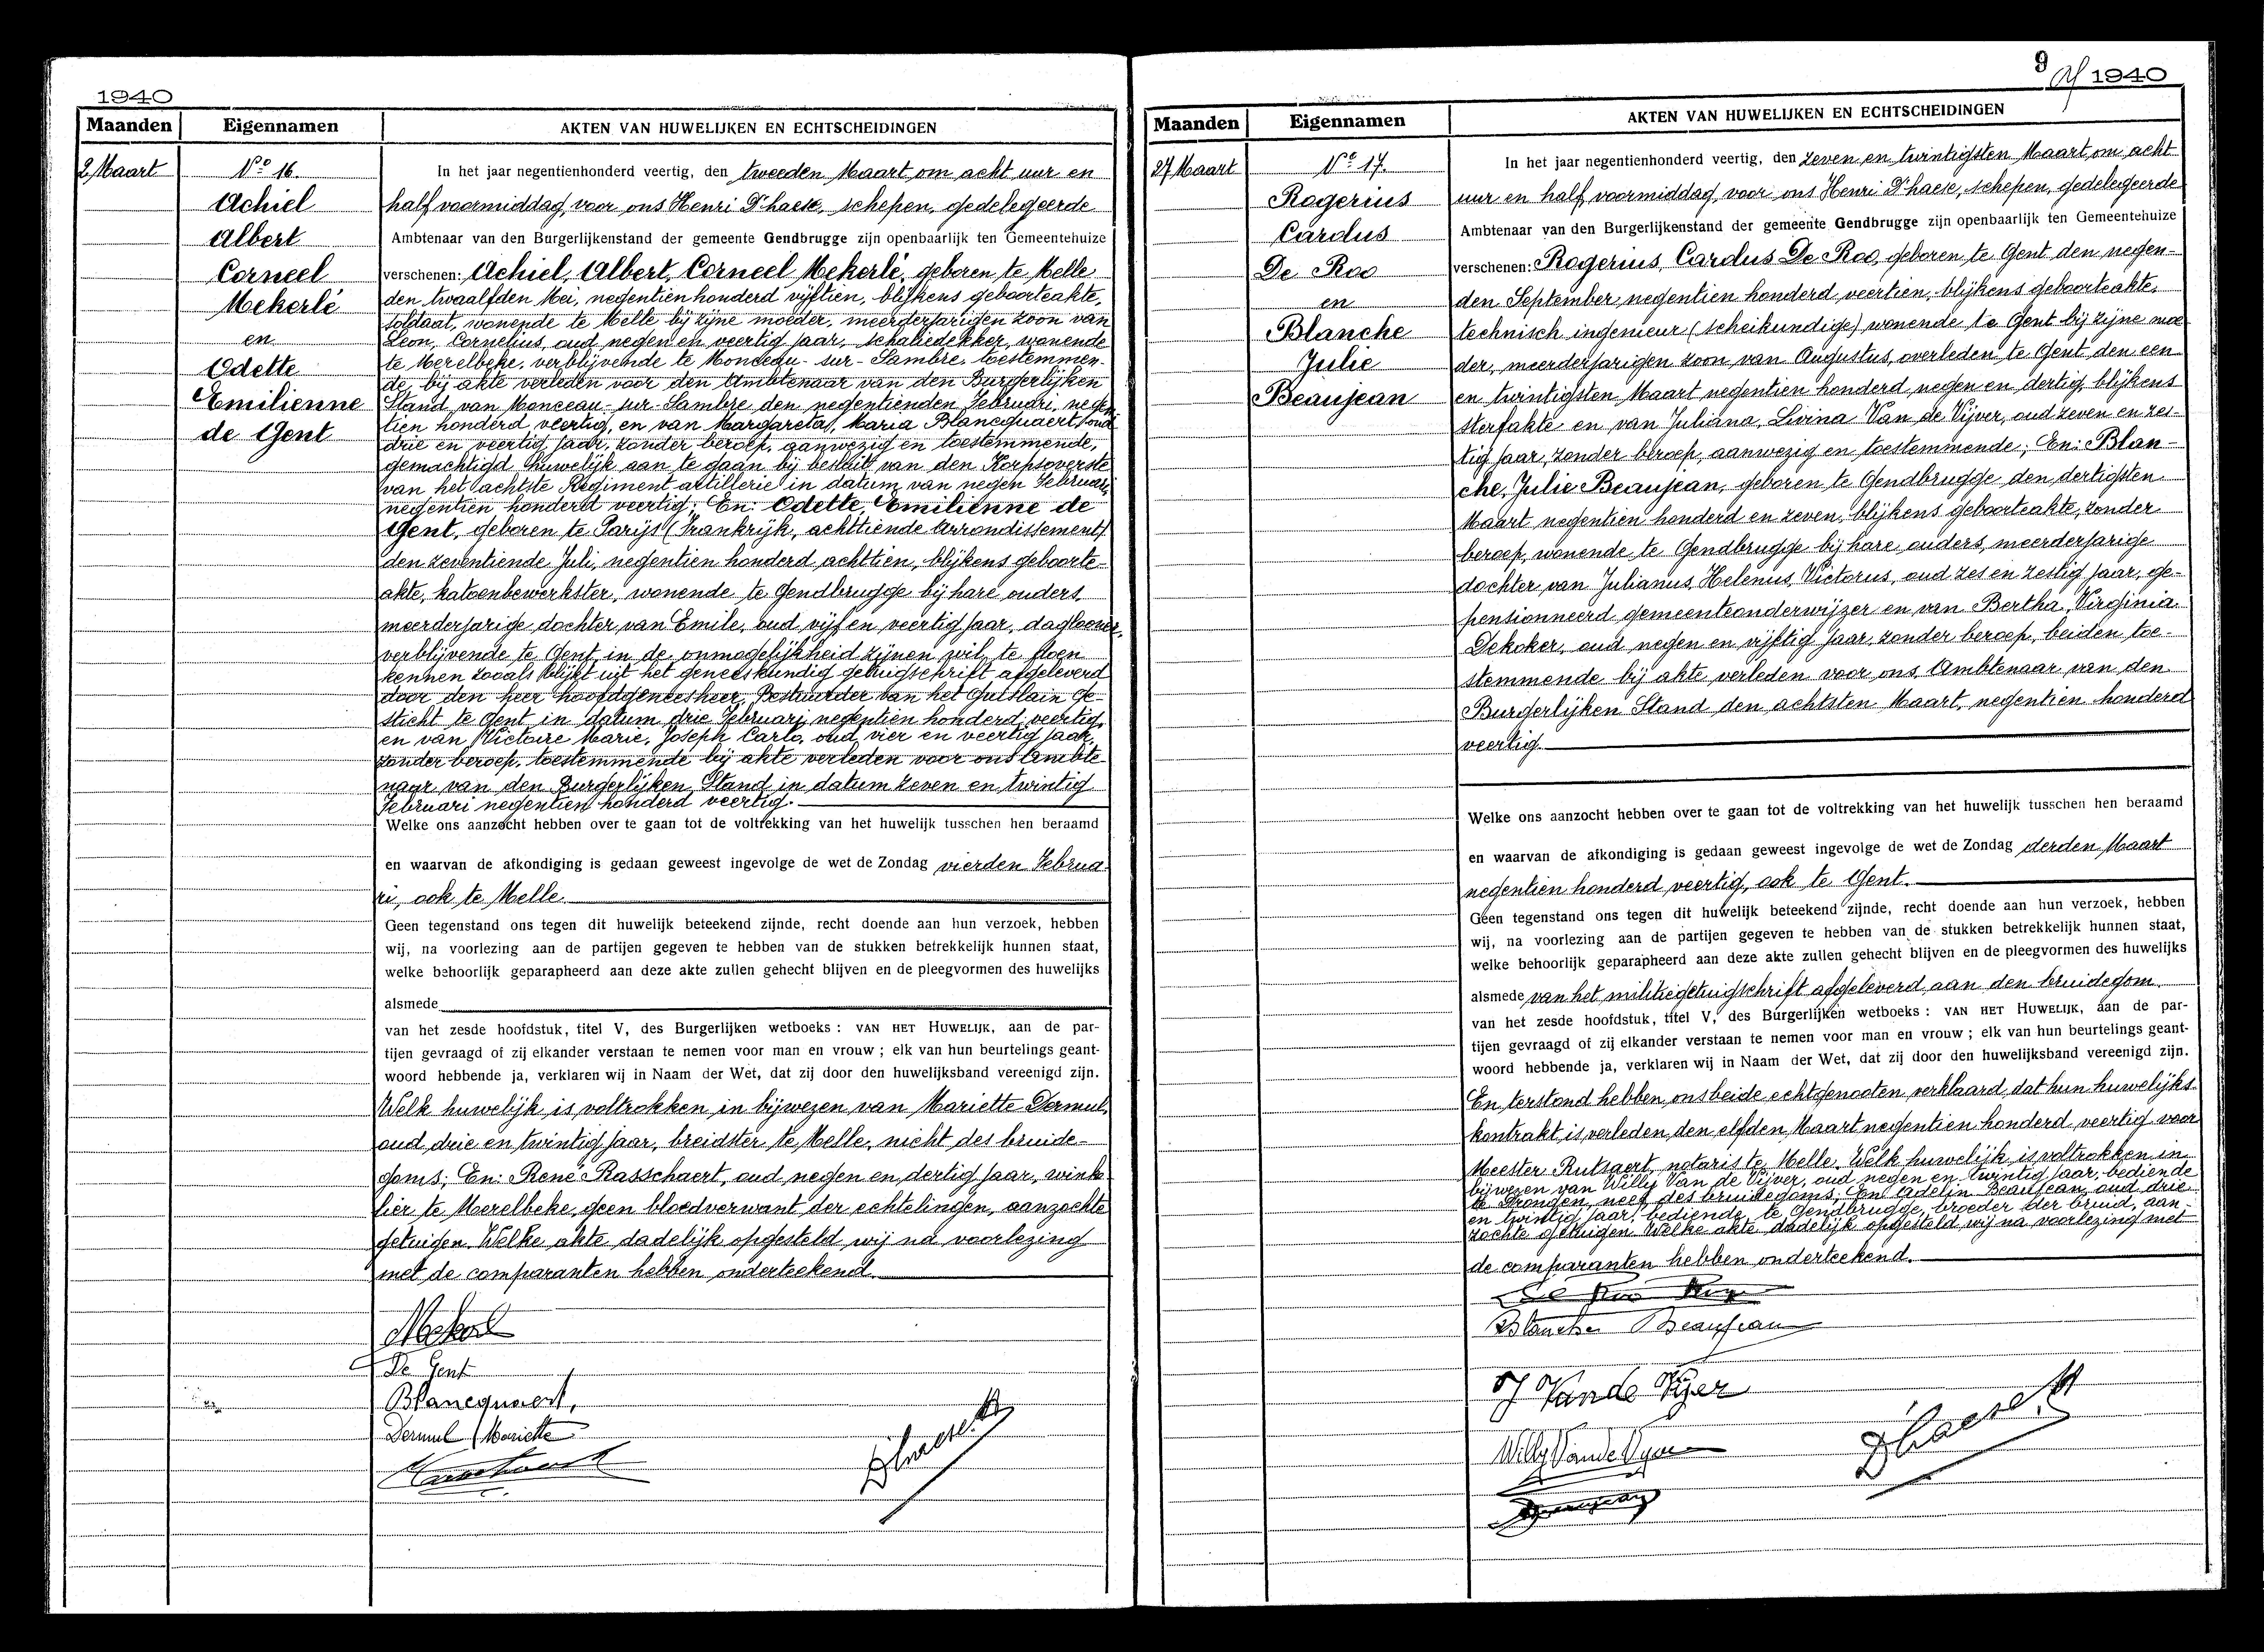 1940
Maanden
Eigennamen
AKTEN VAN HUWELIJKEN EN ECHTSCHEIDINGEN
2 Maart
No 16.
Achiel
Albert
Corneel
Mekerlé
en
Odette
Emilienne
de Gent
In het jaar negentienhonderd veertig, den tweeden Maart, om acht uur en
half voormiddag, voor ons Henri D'haese, schepen, gedelegeerde
Ambtenaar van den Burgerlijkenstand der gemeente Gendbrugge zijn openbaarlijk ten Gemeentehuize
verschenen: Achiel, Albert, Corneel Mekerlé, geboren te Melle
den twaalfden Mei, negentien honderd vijftien, blijkens geboorteakte,
soldaat, wonende te Melle bij zijne moeder, meerderjarigen zoon van
Leon, Cornelius, oud negen en veertig jaar, schaliedekker, wonende
te Merelbeke, verblijvende te Monceau-sur-Sambre, toestemmen-
de bij akte verleden voor den Ambtenaar van den Burgerlijken
Stand van Monceau-sur-Sambre den negentienden Februari, negen
tien honderd veertig, en van Margareta, Maria Blancquaert, oud
drie en veertig jaar, zonder beroep, aanwezig en toestemmende,
gemachtigd huwelijk aan te gaan bij besluit van den Korpsoverste
van het achtste Regiment artillerie in datum van negen Februari
negentien honderd veertig; En: Odette, Emilienne de
Gent, geboren te Parijs (Frankrijk, achttiende Arrondissement)
den zeventiende Juli, negentien honderd achttien, blijkens geboorte-
akte, katoenbewerkster, wonende te Gendbrugge bij hare ouders
meerderjarige dochter van Emile, oud vijf en veertig jaar, dagloner,
verblijvende te Gent, in de onmogelijkheid zijnen wil te doen
kennen zooals blijkt uit het geneeskundig getuigschrift afgeleverd
door den heer hoofdgeneesheer, Bestuurder van het Guislain Ge-
sticht te Gent in datum drie Februari negentien honderd veertig,
en van Victoire Marie, Joseph Carlo, oud vier en veertig jaar,
zonder beroep, toestemmende bij akte verleden voor ons Ambte-
naar van den Burgerlijken Stand in datum zeven en twintig
Februari negentien honderd veertig.
Welke ons aanzocht hebben over te gaan tot de voltrekking van het huwelijk tusschen hen beraamd
en waarvan de afkondiging is gedaan geweest ingevolge de wet de Zondag vierden Februa-
ri, ook te Melle.
Geen tegenstand ons tegen dit huwelijk beteekend zijnde, recht doende aan hun verzoek, hebben
wij, na voorlezing aan de partijen gegeven te hebben van de stukken betrekkelijk hunnen staat,
welke behoorlijk geparapheerd aan deze akte zullen gehecht blijven en de pleegvormen des huwelijks
alsmede
van het zesde hoofdstuk, titel V, des Burgerlijken wetboeks : VAN HET HUWELIJK, aan de par-
tijen gevraagd of zij elkander verstaan te nemen voor man en vrouw ; elk van hun beurtelings geant-
woord hebbende ja, verklaren wij in Naam der Wet, dat zij door den huwelijksband vereenigd zijn.
Welk huwelijk is voltrokken in bijwezen van Mariette Dermul,
oud drie en twintig jaar, breidster te Melle, nicht des bruide-
goms; En: René Rasschaert, oud negen en dertig jaar, winke
lier te Merelbeke, geen bloedverwant der echtelingen, aanzochte
getuigen. Welke akte dadelijk opgesteld wij na voorlezing
met de comparanten hebben onderteekend.
De Gent
Blancquaert,
Dermul Mariette
D'haese H
9
1940
Maanden
Eigennamen
AKTEN VAN HUWELIJKEN EN ECHTSCHEIDINGEN
27 Maart
No 17.
Rogerius
Carolus
De Roo
en
Blanche
Julie
Beaujean
In het jaar negentienhonderd veertig, den zeven en twintigsten Maart, om acht
uur en half voormiddag, voor ons Henri D'haese, schepen, gedelegeerde
Ambtenaar van den Burgerlijkenstand der gemeente Gendbrugge zijn openbaarlijk ten Gemeentehuize
verschenen: Rogerius, Carolus De Roo, geboren te Gent den negen-
den September, negentien honderd veertien, blijkens geboorteakte,
technisch ingenieur (scheikundige) wonende te Gent bij zijne moe
der, meerderjarigen zoon van Augustus, overleden te Gent den een
en twintigsten Maart negentien honderd negen en dertig, blijkens
sterfakte en van Juliana, Livina Van de Vijver, oud zeven en zes-
tig jaar, zonder beroep, aanwezig en toestemmende; En: Blan-
che, Julie Beaujean, geboren te Gendbrugge den dertigsten
Maart negentien honderd en zeven, blijkens geboorteakte, zonder
beroep, wonende te Gendbrugge bij hare ouders, meerderjarige
dochter van Julianus, Helenus, Victorus, oud zes en zestig jaar, ge-
pensionneerd gemeenteonderwijzer en van Bertha, Virginia
Dekoker, oud negen en vijftig jaar, zonder beroep, beiden toe-
stemmende bij akte verleden voor ons, Ambtenaar van den
Burgerlijken Stand den achtsten Maart, negentien honderd
veertig.
Welke ons aanzocht hebben over te gaan tot de voltrekking van het huwelijk tusschen hen beraamd
en waarvan de afkondiging is gedaan geweest ingevolge de wet de Zondag derden Maart
negentien honderd veertig, ook te Gent.
Geen tegenstand ons tegen dit huwelijk beteekend zijnde, recht doende aan hun verzoek, hebben
wij, na voorlezing aan de partijen gegeven te hebben van de stukken betrekkelijk hunnen staat,
welke behoorlijk geparapheerd aan deze akte zullen gehecht blijven en de pleegvormen des huwelijks
alsmede van het militiegetuigschrift afgeleverd aan den bruidegom
van het zesde hoofdstuk, titel V, des Burgerlijken wetboeks : VAN HET HUWELIJK, aan de par-
tijen gevraagd of zij elkander verstaan te nemen voor man en vrouw ; elk van hun beurtelings geant-
woord hebbende ja, verklaren wij in Naam der Wet, dat zij door den huwelijksband vereenigd zijn.
En terstond hebben ons beide echtgenooten verklaard, dat hun huwelijks
kontrakt is verleden, den elfden Maart negentien honderd veertig voor
Meester Rutsaert, notaris te Melle. Welk huwelijk is voltrokken in
bijwezen van Willy Van de Vijver, oud negen en twintig jaar, bediende
te Drongen, neef des bruidegoms; En Adelin Beaujean, oud drie
en twintig jaar, bediende, te Gendbrugge, broeder der bruid, aan-
zochte getuigen. Welke akte dadelijk opgesteld wij na voorlezing met
de comparanten hebben onderteekend.
De Roo
Blanche Beaujean
J Van de Vijver
Willy Van de Vyver
Beaujean
D'haese H